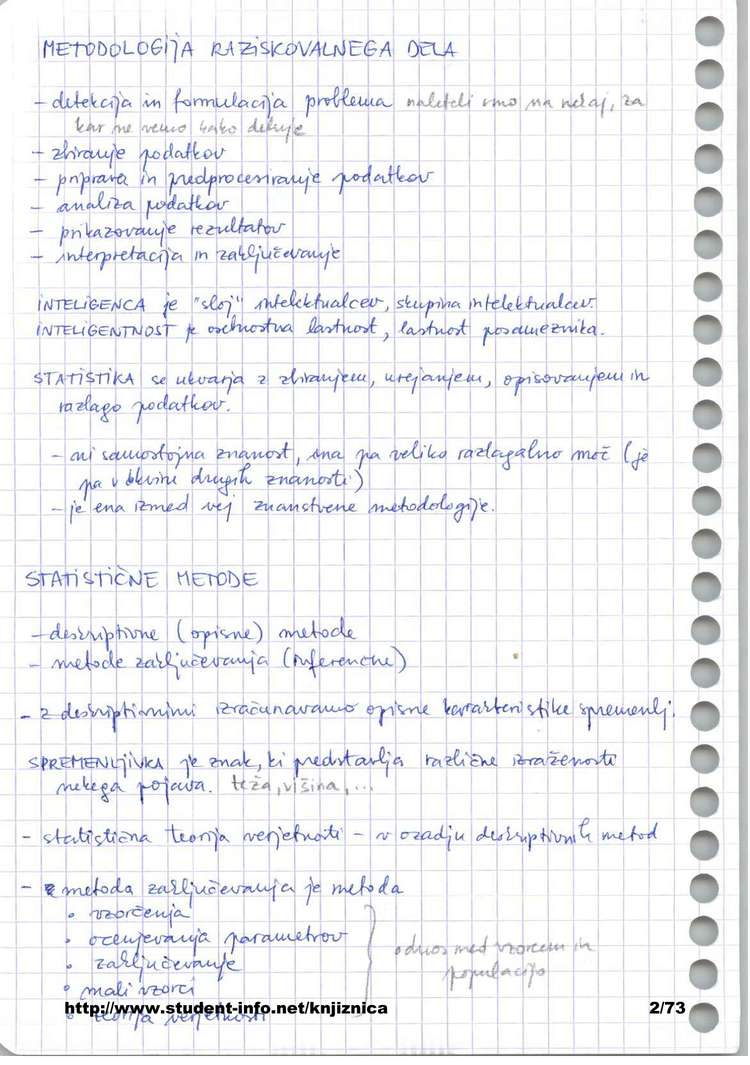 METODOLOGIJA RAZISKOVALNEGA DELA
- detekcija in formulacija problema naleteli smo na nekaj, za
kar ne vemo kako deluje
- zbiranje podatkov
- priprava in predprocesiranje podatkov
- analiza podatkov
- prikazovanje rezultatov
- interpretacija in zaključevanje
INTELIGENCA je "sloj" intelektualcev, skupina intelektualcev.
INTELIGENTNOST je osebnostna lastnost, lastnost posameznika.
STATISTIKA se ukvarja z zbiranjem, urejanjem, opisovanjem in
razlago podatkov.
- ni samostojna znanost, ima pa veliko razlagalno moč (je
pa v okviru drugih znanosti)
- je ena izmed vej znanstvene metodologije.
STATISTIČNE METODE
- deskriptivne (opisne) metode
- metode zaključevanja (inferenčne)
- z deskriptivnimi izračunavamo opisne karakteristike spremenlj.
SPREMENLJIVKA je znak, ki predstavlja različne izraženosti
nekega pojava. teža, višina, ...
- statistična teorija verjetnosti - v ozadju deskriptivnih metod
- metoda zaključevanja je metoda
• vzorčenja
• ocenjevanja parametrov
• zaključevanje
odnos med vzorcem in
populacijo
• mali vzorci
• teorija verjetnosti
http://www.student-info.net/knjiznica 2/73